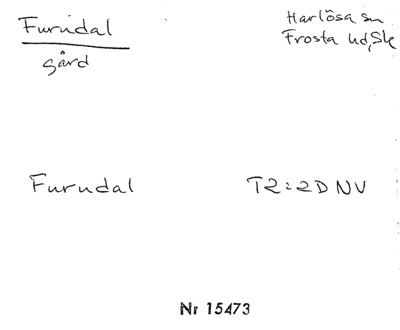 Furudal
gård
Harlösa sn
Frosta hd, Sk
Furudal
T2:2D NV
Nr 15473